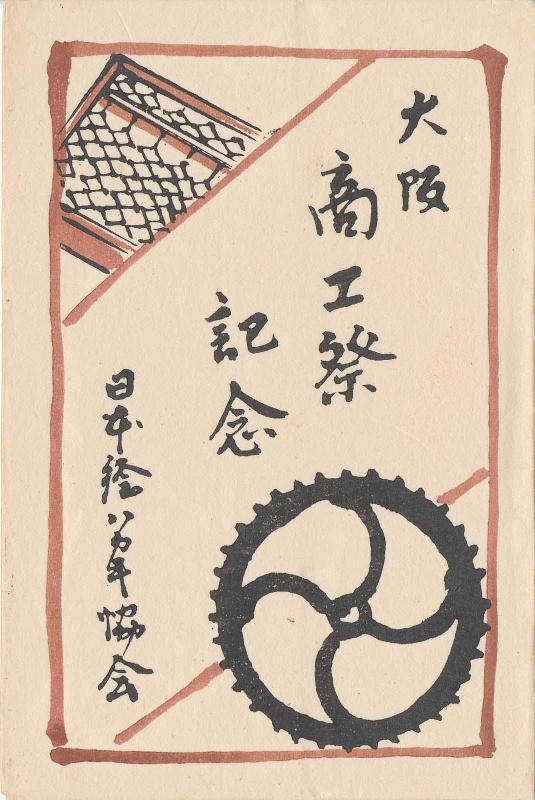 大阪
商工祭
記念
日本絵ハガキ協会